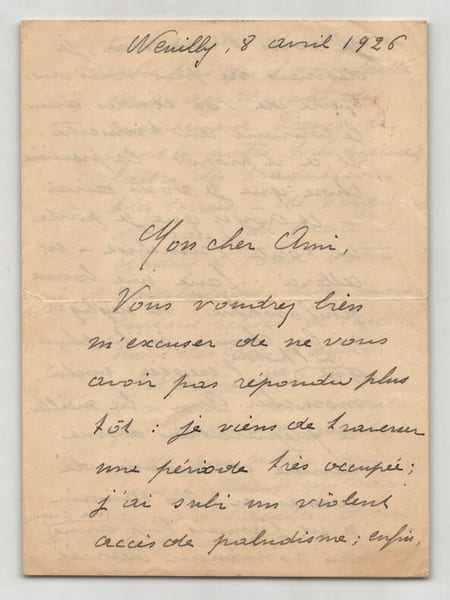 Neuilly, 8 avril 1926
Mon cher Ami,
Vous voudrez bien
m'excuser de ne vous
avoir pas répondu plus
tôt : je viens de traverser
une période très occupée ;
j'ai subi un violent
accès de paludisme ; enfin,